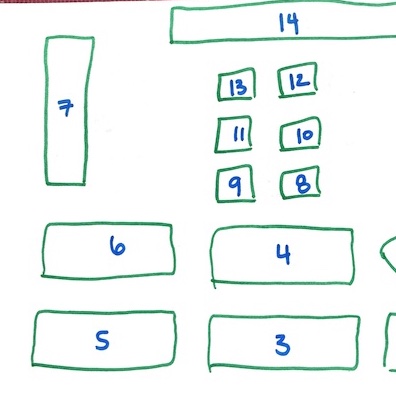 14
7
13 12
11 10
9 8
6 4
5 3